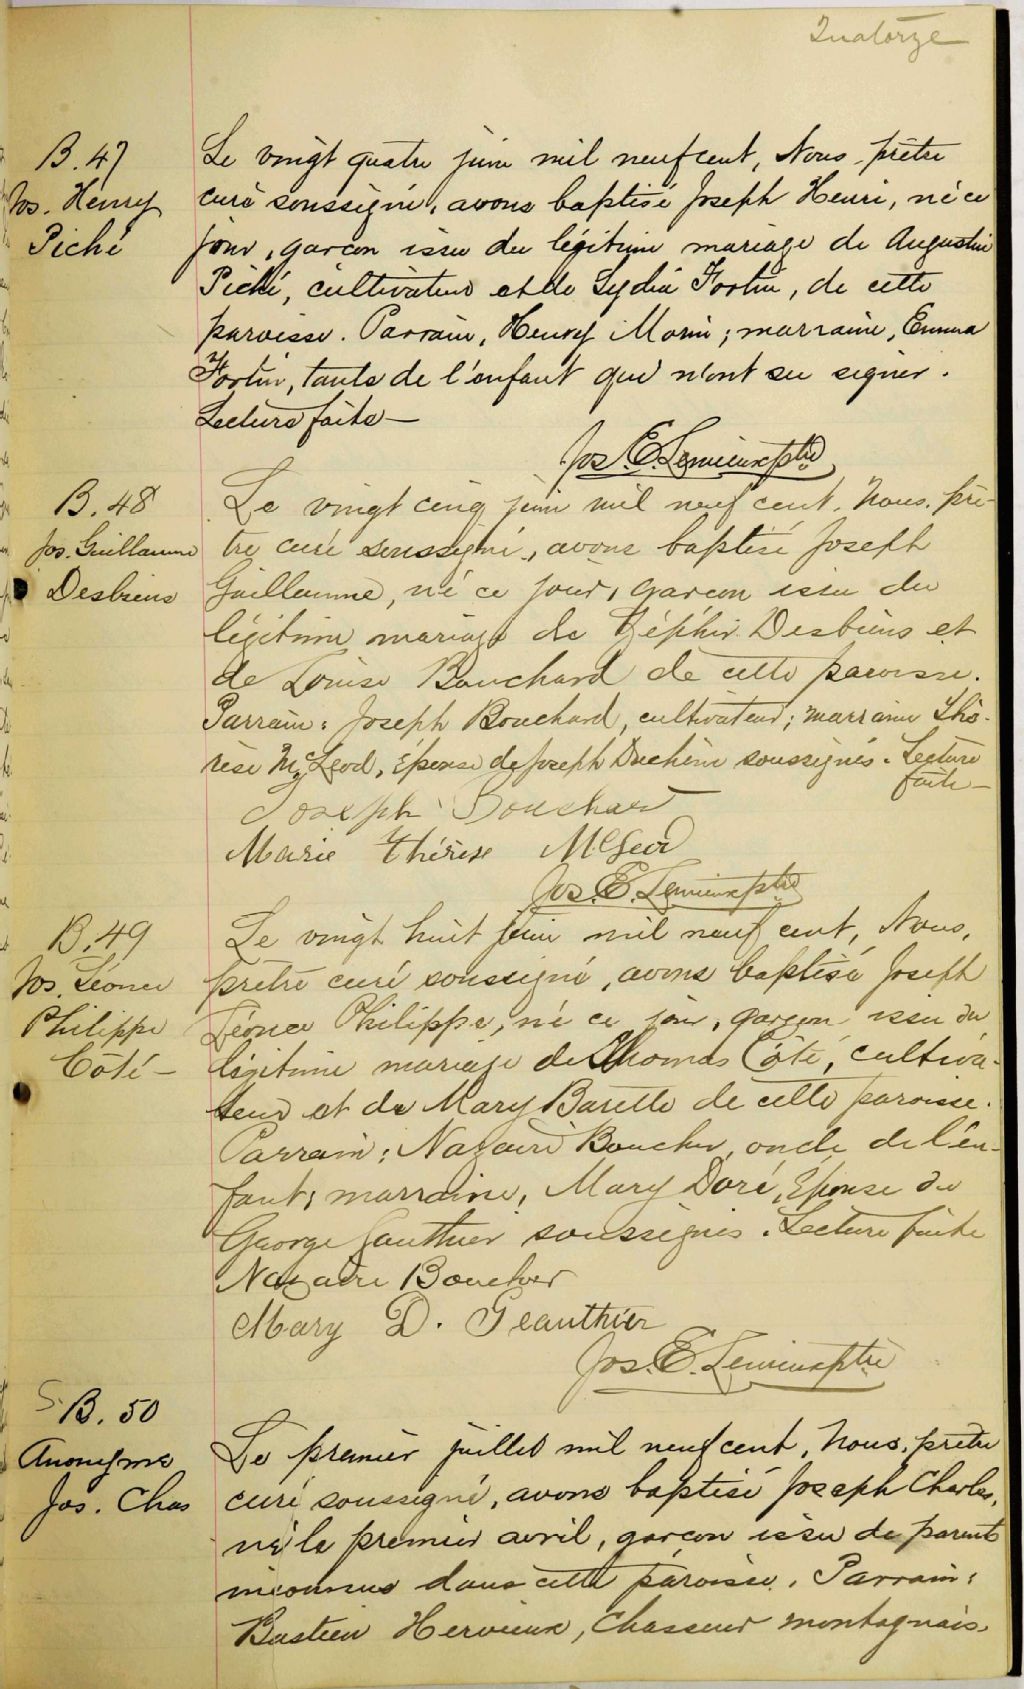 Quatorze
B. 47
Jos. Henry
Piché
Le vingt quatre juin mil neuf cent, Nous, prêtre
curé soussigné, avons baptisé Joseph Henri, né ce
jour, garçon issu du légitime mariage de Augustin
Piché, cultivateur et de Lydia Fortin, de cette
paroisse. Parrain, Henry Morin; marraine, Emma
Fortin, tante de l'enfant qui n'ont su signer.
Lecture faite—
Jos. E. Lemieux ptre
B. 48
Jos. Guillaume
Desbiens
Le vingt cinq juin mil neuf cent, Nous, prê-
tre curé soussigné, avons baptisé Joseph
Guillaume, né ce jour, garçon issu du
légitime mariage de Zéphir Desbiens et
de Louise Bouchard de cette paroisse.
Parrain: Joseph Bouchard, cultivateur; marraine Thé-
rèse McLeod, épouse de Joseph Duchêne soussignés. Lecture
faite—
Joseph Bouchard
Marie Thérèse McLeod
Jos. E. Lemieux ptre
B. 49
Jos. Léonce
Philippe
Côté—
Le vingt huit juin mil neuf cent, Nous,
prêtre curé soussigné, avons baptisé Joseph
Léonce Philippe, né ce jour, garçon issu du
légitime mariage de Thomas Côté, cultiva-
teur et de Mary Barette de cette paroisse.
Parrain: Nazaire Boucher, oncle de l'en-
fant; marraine, Mary Doré, Épouse de
George Gauthier soussignés. Lecture faite
Nazaire Boucher
Mary D. Geauthier
Jos. E. Lemieux ptre
S. B. 50
Anonyme
Jos. Chas
Le premier juillet mil neuf cent, Nous, prêtre
curé soussigné, avons baptisé Joseph Charles,
né le premier avril, garçon issu de parents
inconnus dans cette paroisse. Parrain:
Bastien Hervieux, Chasseur montagnais,